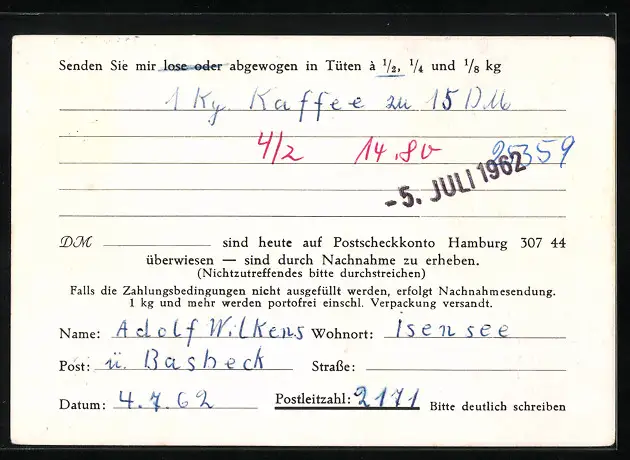 Senden Sie mir lose oder abgewogen in Tüten à 1/2, 1/4 und 1/8 kg
1 Kg. Kaffee zu 15 DM
4/2 14.80 25359
-5. JULI 1962
DM ____________ sind heute auf Postscheckkonto Hamburg 307 44
überwiesen — sind durch Nachnahme zu erheben.
(Nichtzutreffendes bitte durchstreichen)
Falls die Zahlungsbedingungen nicht ausgefüllt werden, erfolgt Nachnahmesendung.
1 kg und mehr werden portofrei einschl. Verpackung versandt.
Name: Adolf Wilkens Wohnort: Isensee
Post: ü. Basbeck Straße:
Datum: 4.7.62 Postleitzahl: 2171 Bitte deutlich schreiben